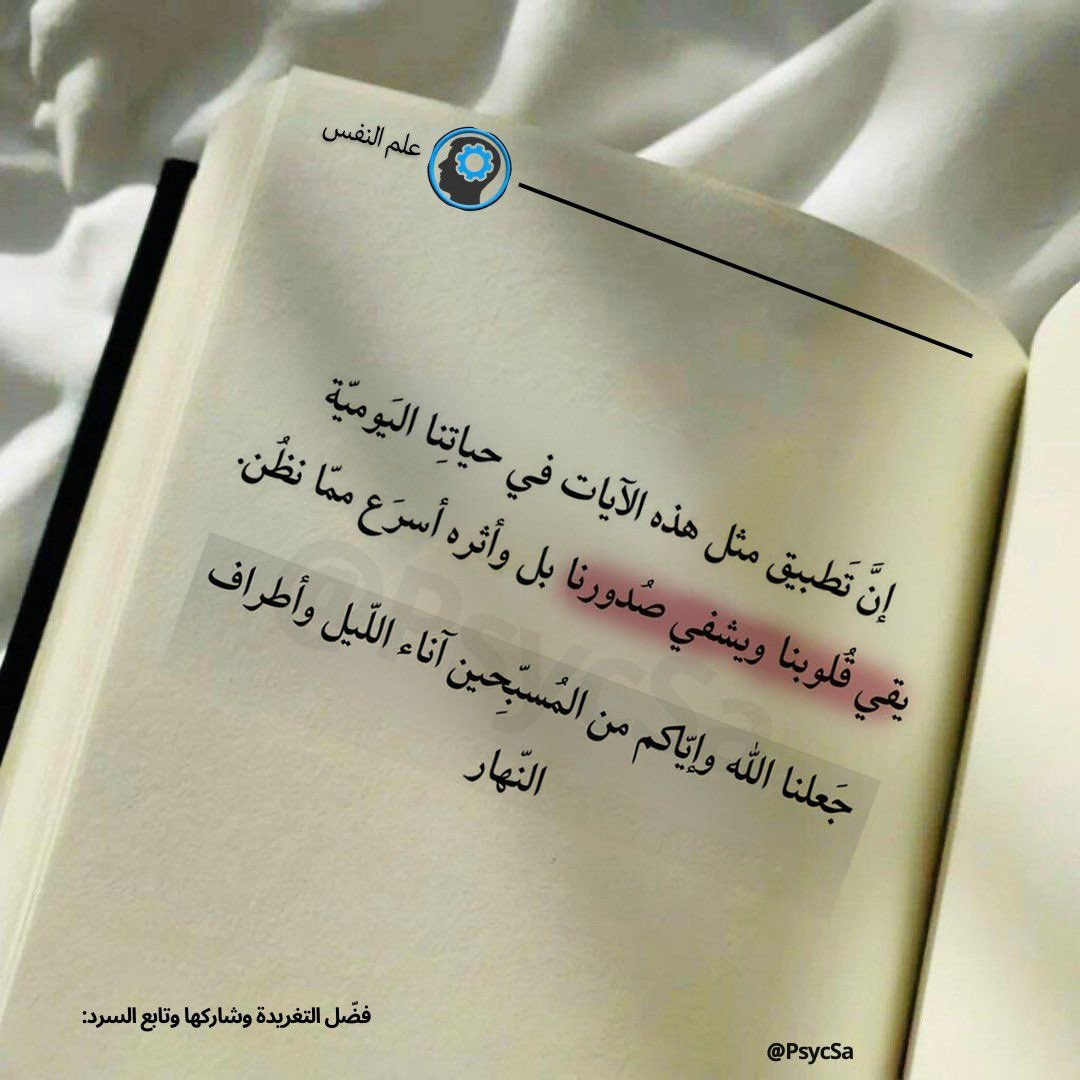 علم النفس
إنَّ تَطبيق مثل هذه الآيات في حياتِنا اليَوميّة
يقي قُلوبنا ويشفي صُدورنا بل وأثره أسرَع ممّا نظُن.
جَعلنا الله وإيّاكم من المُسبّحِين آناء اللّيل وأطراف
النّهار
@PsycSa
فضّل التغريدة وشاركها وتابع السرد:
@PsycSa